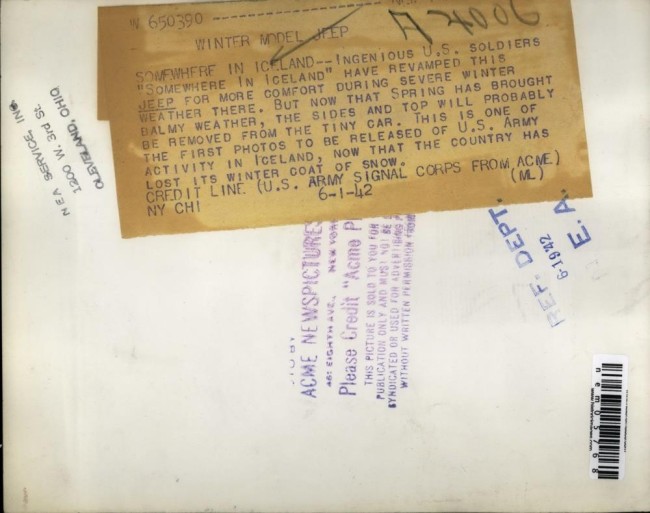 W 650390
A 2006
WINTER MODEL JEEP
SOMEWHERE IN ICELAND--INGENIOUS U.S. SOLDIERS
"SOMEWHERE IN ICELAND" HAVE REVAMPED THIS
JEEP FOR MORE COMFORT DURING SEVERE WINTER
WEATHER THERE. BUT NOW THAT SPRING HAS BROUGHT
BALMY WEATHER, THE SIDES AND TOP WILL PROBABLY
BE REMOVED FROM THE TINY CAR. THIS IS ONE OF
THE FIRST PHOTOS TO BE RELEASED OF U.S. ARMY
ACTIVITY IN ICELAND, NOW THAT THE COUNTRY HAS
LOST ITS WINTER COAT OF SNOW.
CREDIT LINE (U.S. ARMY SIGNAL CORPS FROM ACME)
NY CHI 6-1-42 (ML)
NEA SERVICE, INC
1200 W. 3rd St.
CLEVELAND, OHIO
ACME NEWSPICTURES
461 EIGHTH AVE., NEW YORK
Please Credit "Acme P
THIS PICTURE IS SOLD TO YOU FOR
PUBLICATION ONLY AND MUST NOT BE
SYNDICATED OR USED FOR ADVERTISING
WITHOUT WRITTEN PERMISSION FROM
REF. DEPT.
6-19-42
E. A.
nem05768